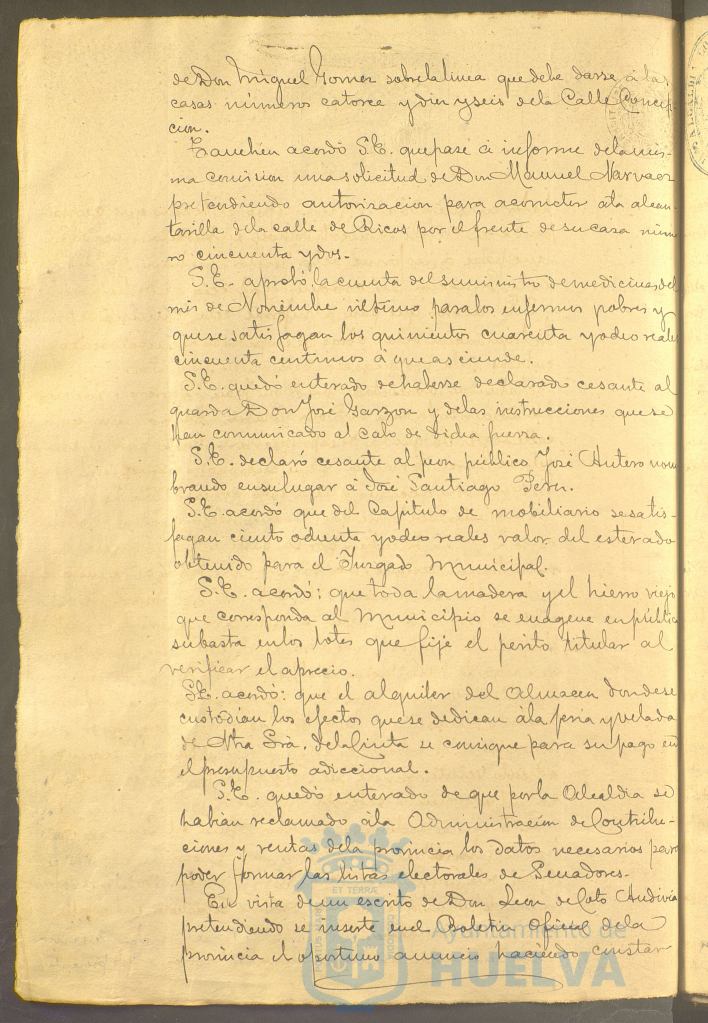 de Don Miguel Gomez sobre la linea que debe darse á las
casas números catorce y diez y seis de la Calle Concep-
cion.
Tambien acordó S.E. que pase á informe de la mis-
ma comision una solicitud de Don Manuel Narvaez
pretendiendo autorizacion para acometer á la alcan-
tarilla de la calle de Ricos por el frente de su casa núme-
ro cincuenta y dos.
S.E. aprobó la cuenta del suministro de medicinas del
mes de Noviembre último para los enfermos pobres y
que se satisfagan los quinientos cuarenta y ocho reales
cincuenta centimos á que asciende.
S.E. quedó enterado de haberse declarado cesante al
guarda Don José Garzon y de las instrucciones que se
han comunicado al cabo de dicha fuerza.
S.E. declaró cesante al peon público José Antero nom-
brando en su lugar á José Santiago
S.E. acordó que del Capitulo de mobiliario se satis-
fagan ciento ochenta y ocho reales valor del esterado
obtenido para el Juzgado Municipal.
S.E. acordó: que toda la madera y el hierro viejo
que corresponda al Municipio se enagene en pública
subasta en los lotes que fije el perito titular al
verificar el aprecio.
S.E. acordó: que el alquiler del Almacen donde se
custodian los efectos que se dedican á la feria y velada
de Ntra Srà. de la Cinta se consigne para su pago en
el presupuesto adiccional.
S.E. quedó enterado de que por la Alcaldia se
habian reclamado á la Administracion de Contribu-
ciones y rentas de la provincia los datos necesarios para
poder formar las listas electorales de Senadores.
En vista de un escrito de Don Leon de Coto Andivia
pretendiendo se inserte en el Boletin Oficial de la
provincia el oportuno anuncio haciendo constar
Ayuntamiento de
HUELVA